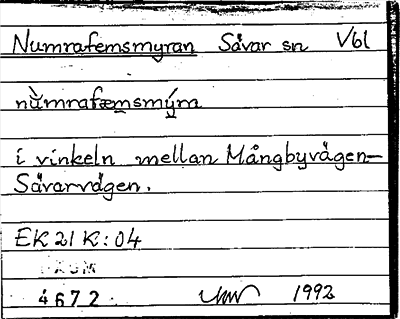 Numrafemsmyran Sävar sn Vbl
nùmrafæmsmýra
i vinkeln mellan Mångbyvägen–
Sävarvägen.
EK 21 K:04
4672. 1992